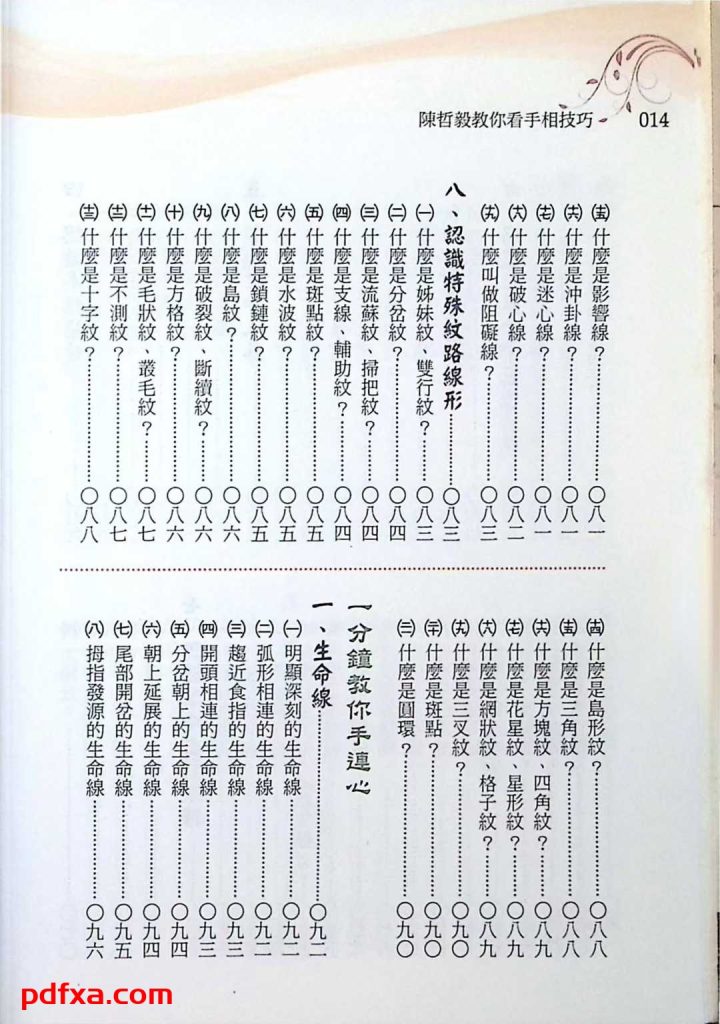 陳哲毅教你看手相技巧 014
(十五)什麼是影響線？……〇八一
(十六)什麼是沖卦線？……〇八一
(十七)什麼是迷心線？……〇八一
(十八)什麼是破心線？……〇八二
(十九)什麼叫做阻礙線？……〇八三
八、認識特殊紋路線形……〇八三
(一)什麼是姊妹紋、雙行紋？……〇八三
(二)什麼是分岔紋？……〇八四
(三)什麼是流蘇紋、掃把紋？……〇八四
(四)什麼是支線、輔助紋？……〇八四
(五)什麼是斑點紋？……〇八五
(六)什麼是水波紋？……〇八五
(七)什麼是鎖鏈紋？……〇八五
(八)什麼是島紋？……〇八六
(九)什麼是破裂紋、斷續紋？……〇八六
(十)什麼是方格紋？……〇八六
(十一)什麼是毛狀紋、叢毛紋？……〇八七
(十二)什麼是不測紋？……〇八七
(十三)什麼是十字紋？……〇八八
(十四)什麼是島形紋？……〇八八
(十五)什麼是三角紋？……〇八八
(十六)什麼是方塊紋、四角紋？……〇八九
(十七)什麼是花星紋、星形紋？……〇八九
(十八)什麼是網狀紋、格子紋？……〇八九
(十九)什麼是三叉紋？……〇九〇
(二十)什麼是斑點？……〇九〇
(二一)什麼是圓環？……〇九〇
一分鐘教你手連心
一、生命線……〇九二
(一)明顯深刻的生命線……〇九二
(二)弧形相連的生命線……〇九二
(三)趨近食指的生命線……〇九三
(四)開頭相連的生命線……〇九三
(五)分岔朝上的生命線……〇九四
(六)朝上延展的生命線……〇九四
(七)尾部開岔的生命線……〇九五
(八)拇指發源的生命線……〇九六
pdfxa.com